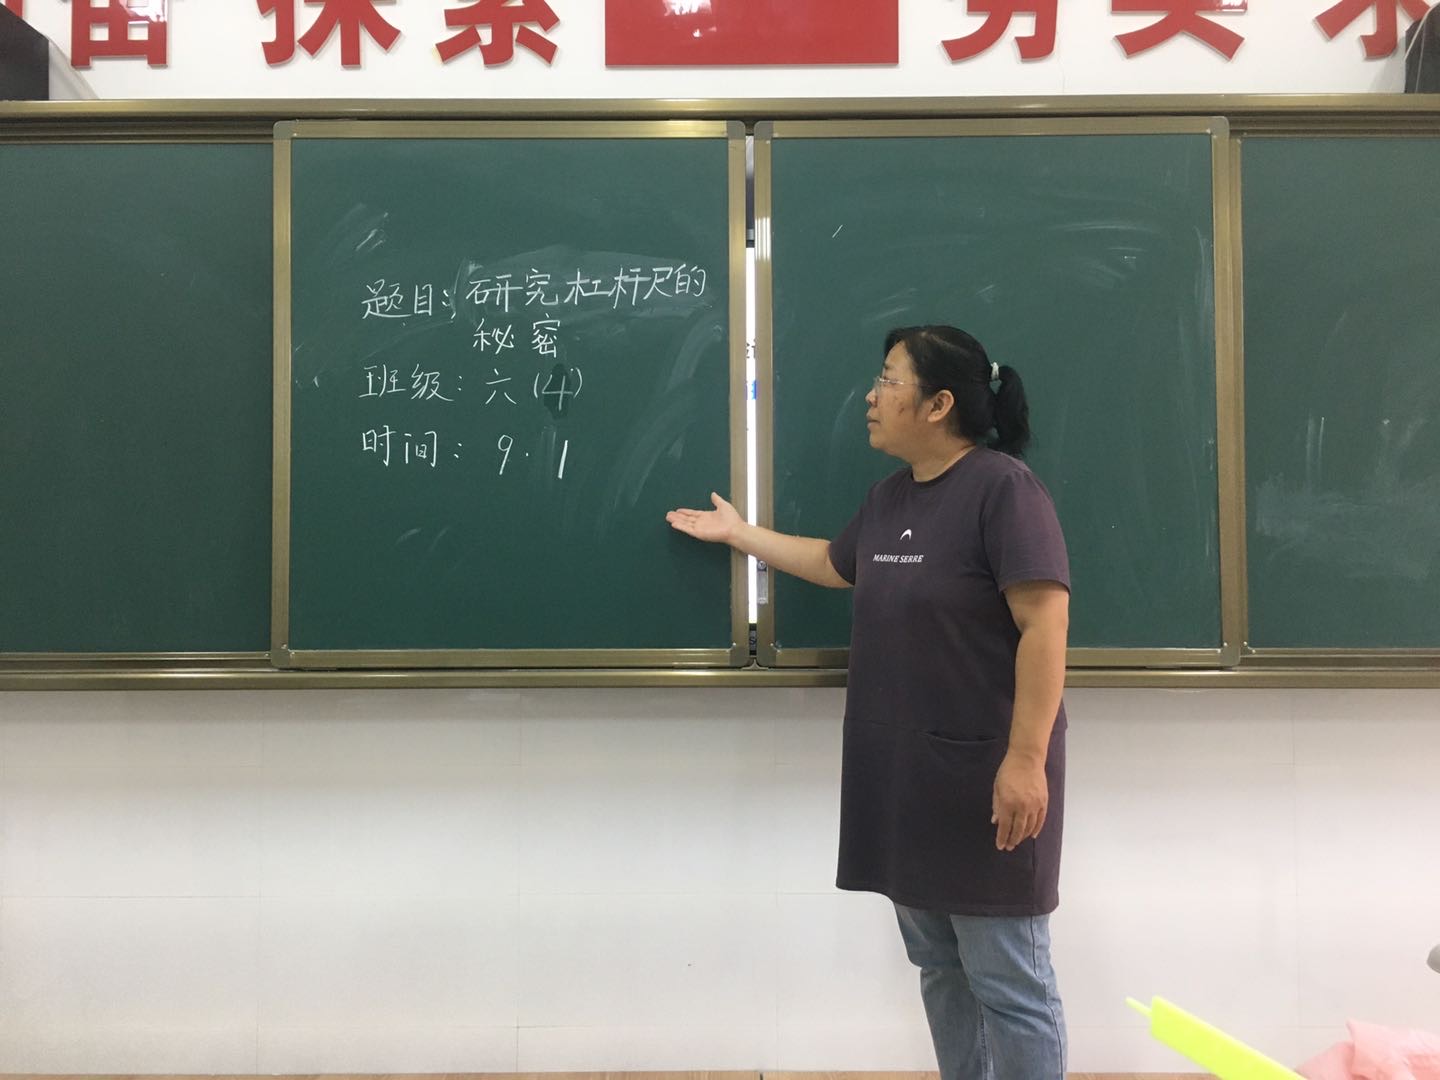 探索
题目：研究杠杆尺的
秘密
班级：六（4）
时间：9.1
MARINE SERRE